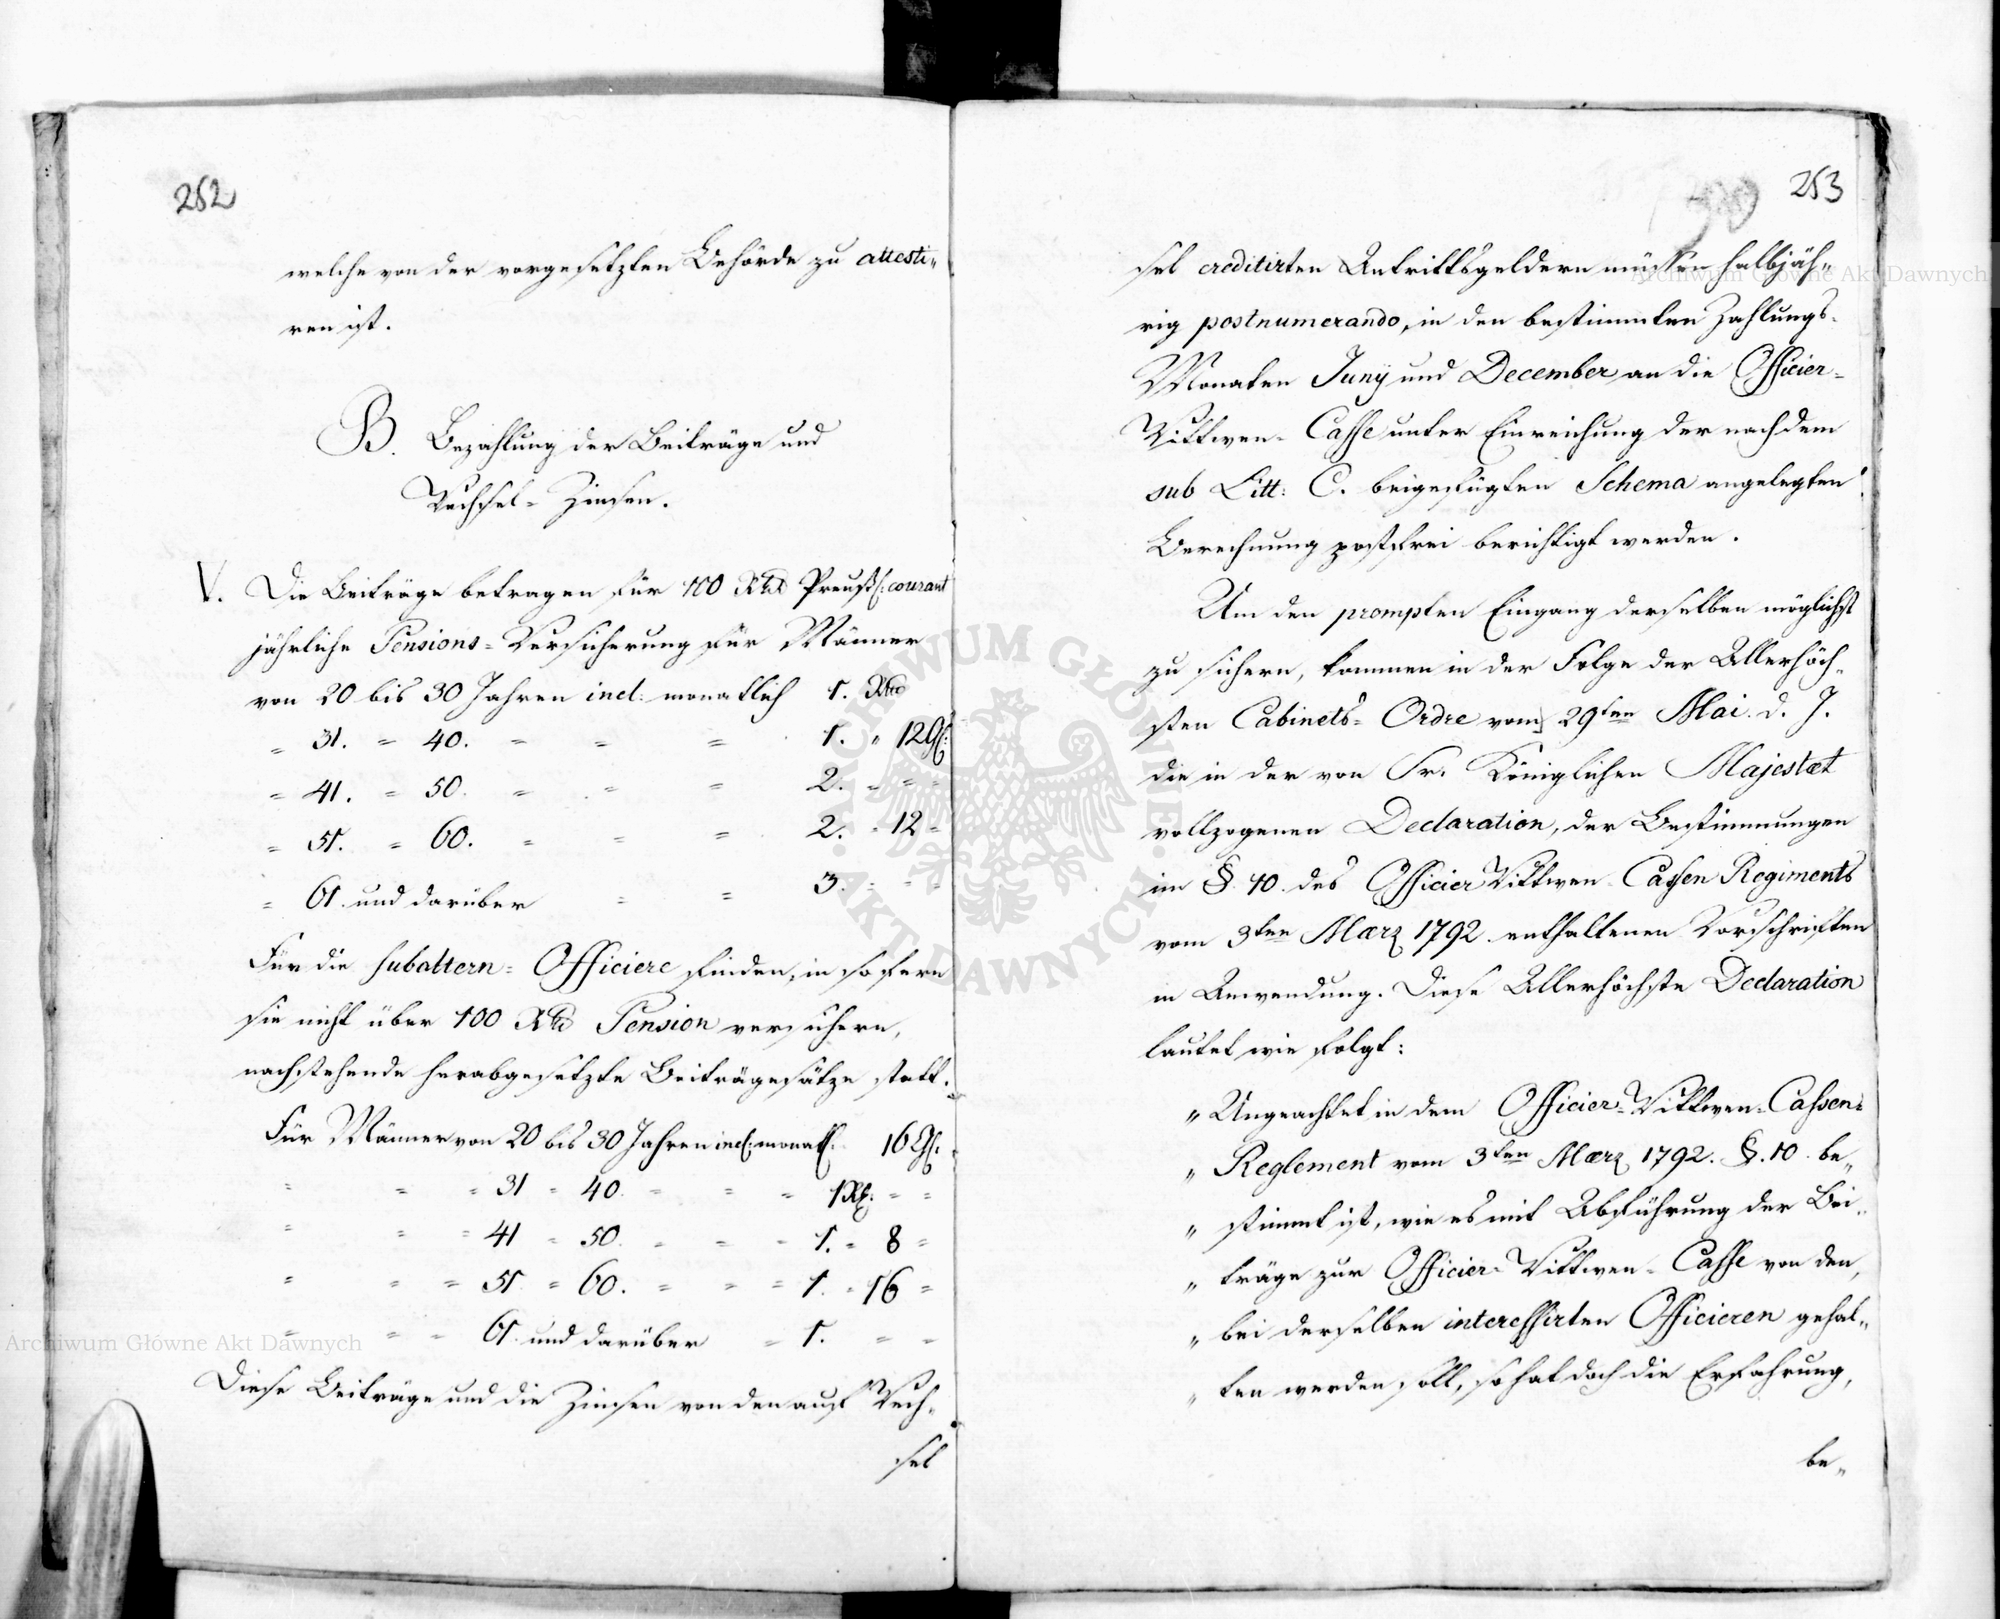 252
welche von der vorgesetzten Behörde zu attesti„
ren ist.
B. Bezahlung der Beiträge und
Wechsel- Zinsen.
V. Die Beiträge betragen für 100 Rtlr Preuß: courant
jährliche Pensions- Versicherung für Männer
von 20 bis 30 Jahren incl: monatlich 1. Rtlr
= 31. = 40. = = = 1. " 12 Gr:
= 41. = 50. = = = 2. = = =
= 51. = 60. = = = 2. = 12 =
= 61. und darüber = = 3. = = =
Für die Subaltern- Officiere finden, in sofern
sie nicht über 100 Rtlr Pension versichern,
nachstehende herabgesetzte Beiträgesätze statt.
Für Männer von 20 bis 30 Jahren incl: monatl. 16 Gr.
= = = 31 = 40. = = = 1 Rtl: = =
= = = 41 = 50. = = = 1. = 8 =
= = = 51 = 60. = = = 1. = 16 =
= = = 61. und darüber = 1. = =
Diese Beiträge und die Zinsen von den auf Wech„
sel
253
sel creditirten Antrittsgeldern müssen halbjäh„
rig postnumerando, in den bestimmten Zahlungs-
Monaten Juny und December an die Officier-
Wittwen- Casse unter Einreichung der nach dem
sub Litt: C. beigefügten Schema angelegten
Berechnung postfrei berichtigt werden.
Um den prompten Eingang derselben möglichst
zu sichern, kommen in der Folge der Allerhöch„
sten Cabinets- Ordre vom 29ten Mai. d. J.
die in der von Sr. Königlichen Majestæt
vollzogenen Declaration, der Bestimmungen
im §. 10. des Officier Wittwen- Cassen Regiments
vom 3ten März 1792 enthaltenen Vorschriften
in Anwendung. Diese Allerhöchste Declaration
lautet wie folgt:
„ Ungeachtet in dem Officier- Wittwen- Cassen-
„ Reglement vom 3ten März 1792. §. 10. be„
„ stimmt ist, wie es mit Abführung der Bei„
„ träge zur Officier- Wittwen- Casse von den,
„ bei derselben interessirten Officieren gehal„
„ ten werden soll, so hat doch die Erfahrung,
be„
Archiwum Główne Akt Dawnych
Archiwum Główne Akt Dawnych
ARCHIWUM GŁÓWNE · AKT DAWNYCH ·